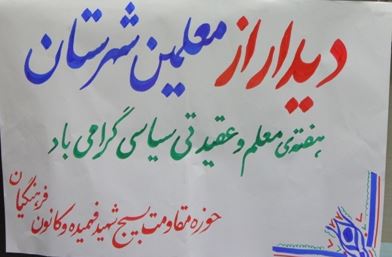 دیدار از معلمین شهرستان
هفته‌ی معلم و عقیدتی سیاسی گرامی باد
حوزه مقاومت بسیج شهید فهمیده و کانون فرهنگیان